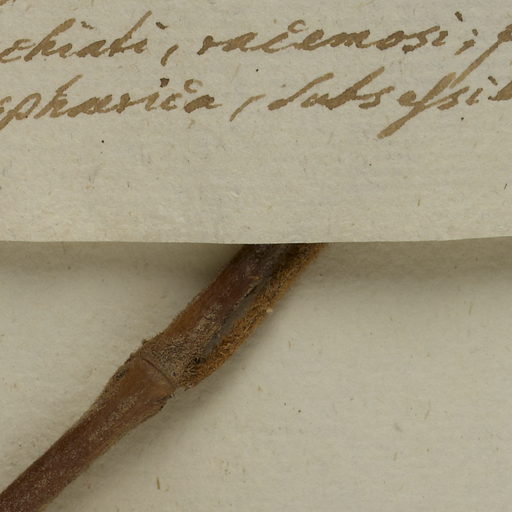 chiati, racemosi;
sphærica, subsessil